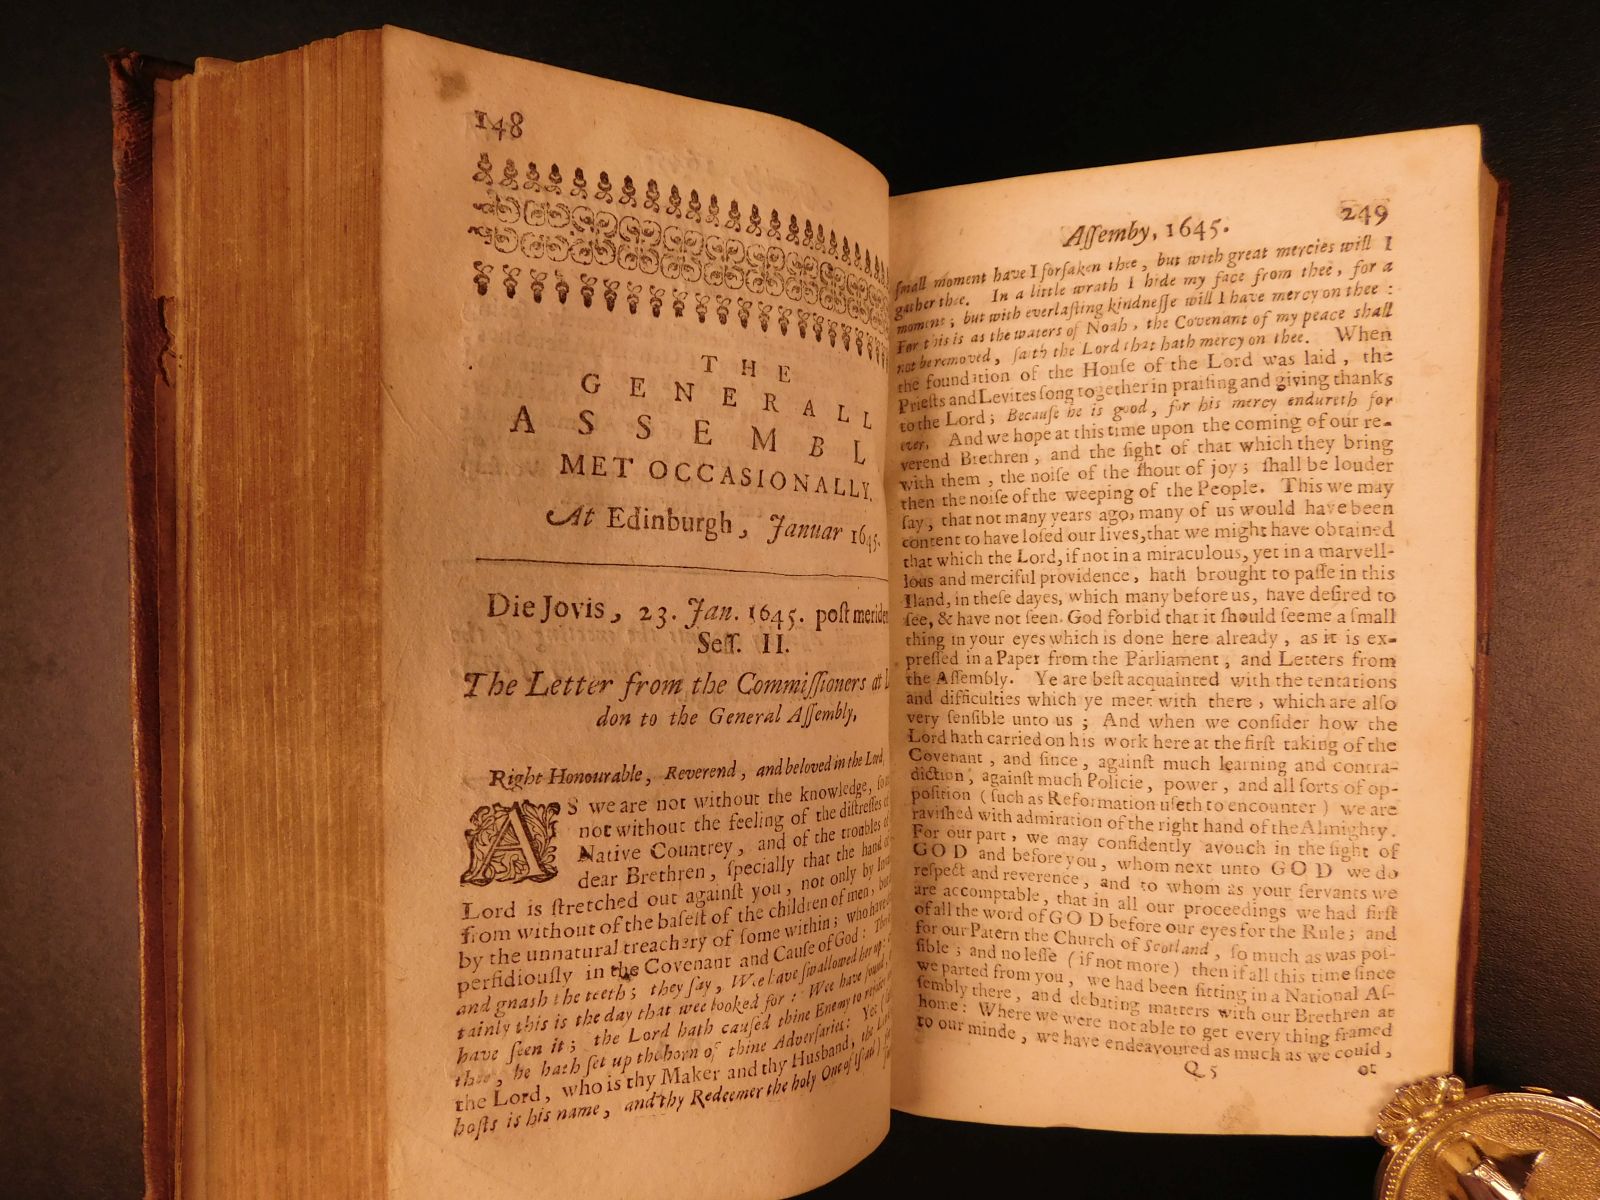 148
THE
GENERALL
ASSEMBL
MET OCCASIONALLY,
At Edinburgh, Januar 1645.
Die Jovis, 23. Jan. 1645. poſt meride
Seſſ. II.
The Letter from the Commiſſioners at L
don to the General Aſſembly,
Right Honourable, Reverend, and beloved in the Lord,
AS we are not without the knowledge, ſo
not without the feeling of the diſtreſſes of
Native Countrey, and of the troubles of
dear Brethren, ſpecially that the hand of
Lord is ſtretched out againſt you, not only by
from without of the baſeſt of the children of men, but
by the unnatural treachery of ſome within; who have
perfidiouſly in the Covenant and Cauſe of God:
and gnaſh the teeth; they ſay, We have ſwallowed her up:
tainly this is the day that wee looked for: Wee have found,
have ſeen it; the Lord hath cauſed thine Enemy to
thee, he hath ſet up the horn of thine Adverſaries: Yet
the Lord, who is thy Maker and thy Husband, the
hoſts is his name, and thy Redeemer the holy One of Iſrael)
249
Aſſemby, 1645.
ſmall moment have I forſaken thee, but with great mercies will I
gather thee. In a little wrath I hide my face from thee, for a
moment; but with everlaſting kindneſſe will I have mercy on thee:
For this is as the waters of Noah, the Covenant of my peace shall
not be removed, ſaith the Lord that hath mercy on thee. When
the foundation of the Houſe of the Lord was laid, the
Prieſts and Levites ſong together in praiſing and giving thanks
to the Lord; Becauſe he is good, for his mercy endureth for
ever. And we hope at this time upon the coming of our re-
verend Brethren, and the ſight of that which they bring
with them, the noiſe of the ſhout of joy; ſhall be louder
then the noiſe of the weeping of the People. This we may
ſay, that not many years ago, many of us would have been
content to have loſed our lives, that we might have obtained
that which the Lord, if not in a miraculous, yet in a marvell-
lous and merciful providence, hath brought to paſſe in this
Iland, in theſe dayes, which many before us, have deſired to
ſee, & have not ſeen. God forbid that it ſhould ſeeme a ſmall
thing in your eyes which is done here already, as it is ex-
preſſed in a Paper from the Parliament, and Letters from
the Aſſembly. Ye are beſt acquainted with the tentations
and difficulties which ye meet with there, which are alſo
very ſenſible unto us; And when we conſider how the
Lord hath carried on his work here at the firſt taking of the
Covenant, and ſince, againſt much learning and contra-
diction, againſt much Policie, power, and all ſorts of op-
poſition (ſuch as Reformation uſeth to encounter) we are
raviſhed with admiration of the right hand of the Almighty.
For our part, we may confidently avouch in the ſight of
GOD and before you, whom next unto GOD we do
reſpect and reverence, and to whom as your ſervants we
are accomptable, that in all our proceedings we had firſt
of all the word of GOD before our eyes for the Rule; and
for our Patern the Church of Scotland, ſo much as was poſ-
ſible; and no leſſe (if not more) then if all this time ſince
we parted from you, we had been ſitting in a National Aſ-
ſembly there, and debating matters with our Brethren at
home: Where we were not able to get every thing framed
to our minde, we have endeavoured as much as we could,
Q 5 ot